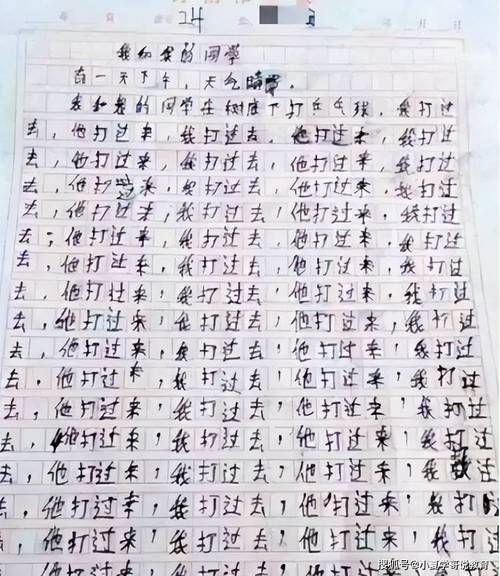 24
我和我的同学
有一天下午，天气晴朗。
我和我的同学在树底下打乒乓球，我打过
去，他打过来，我打过去，他打过来，我打过
去，他打过来，我打过去，他打过来，我打过
去，他打过来，我打过去，他打过来，我打过
去，他打过来，我打过去，他打过来，我打过
去，他打过来，我打过去，他打过来，我打过
去，他打过来，我打过去，他打过来，我打过
去，他打过来，我打过去，他打过来，我打过
去，他打过来，我打过去，他打过来，我打过
去，他打过来，我打过去，他打过来，我打过
去，他打过来，我打过去，他打过来，我打过
去，他打过来，我打过去，他打过来，我打过
去，他打过来，我打过去，他打过来，我打过
去，他打过来，我打过去，他打过来，我过
去，他打过来，我打过去，他打过来，我打
去，他打过来，我打过去，他打过来，我打过
搜狐号@小夏学哥说教育